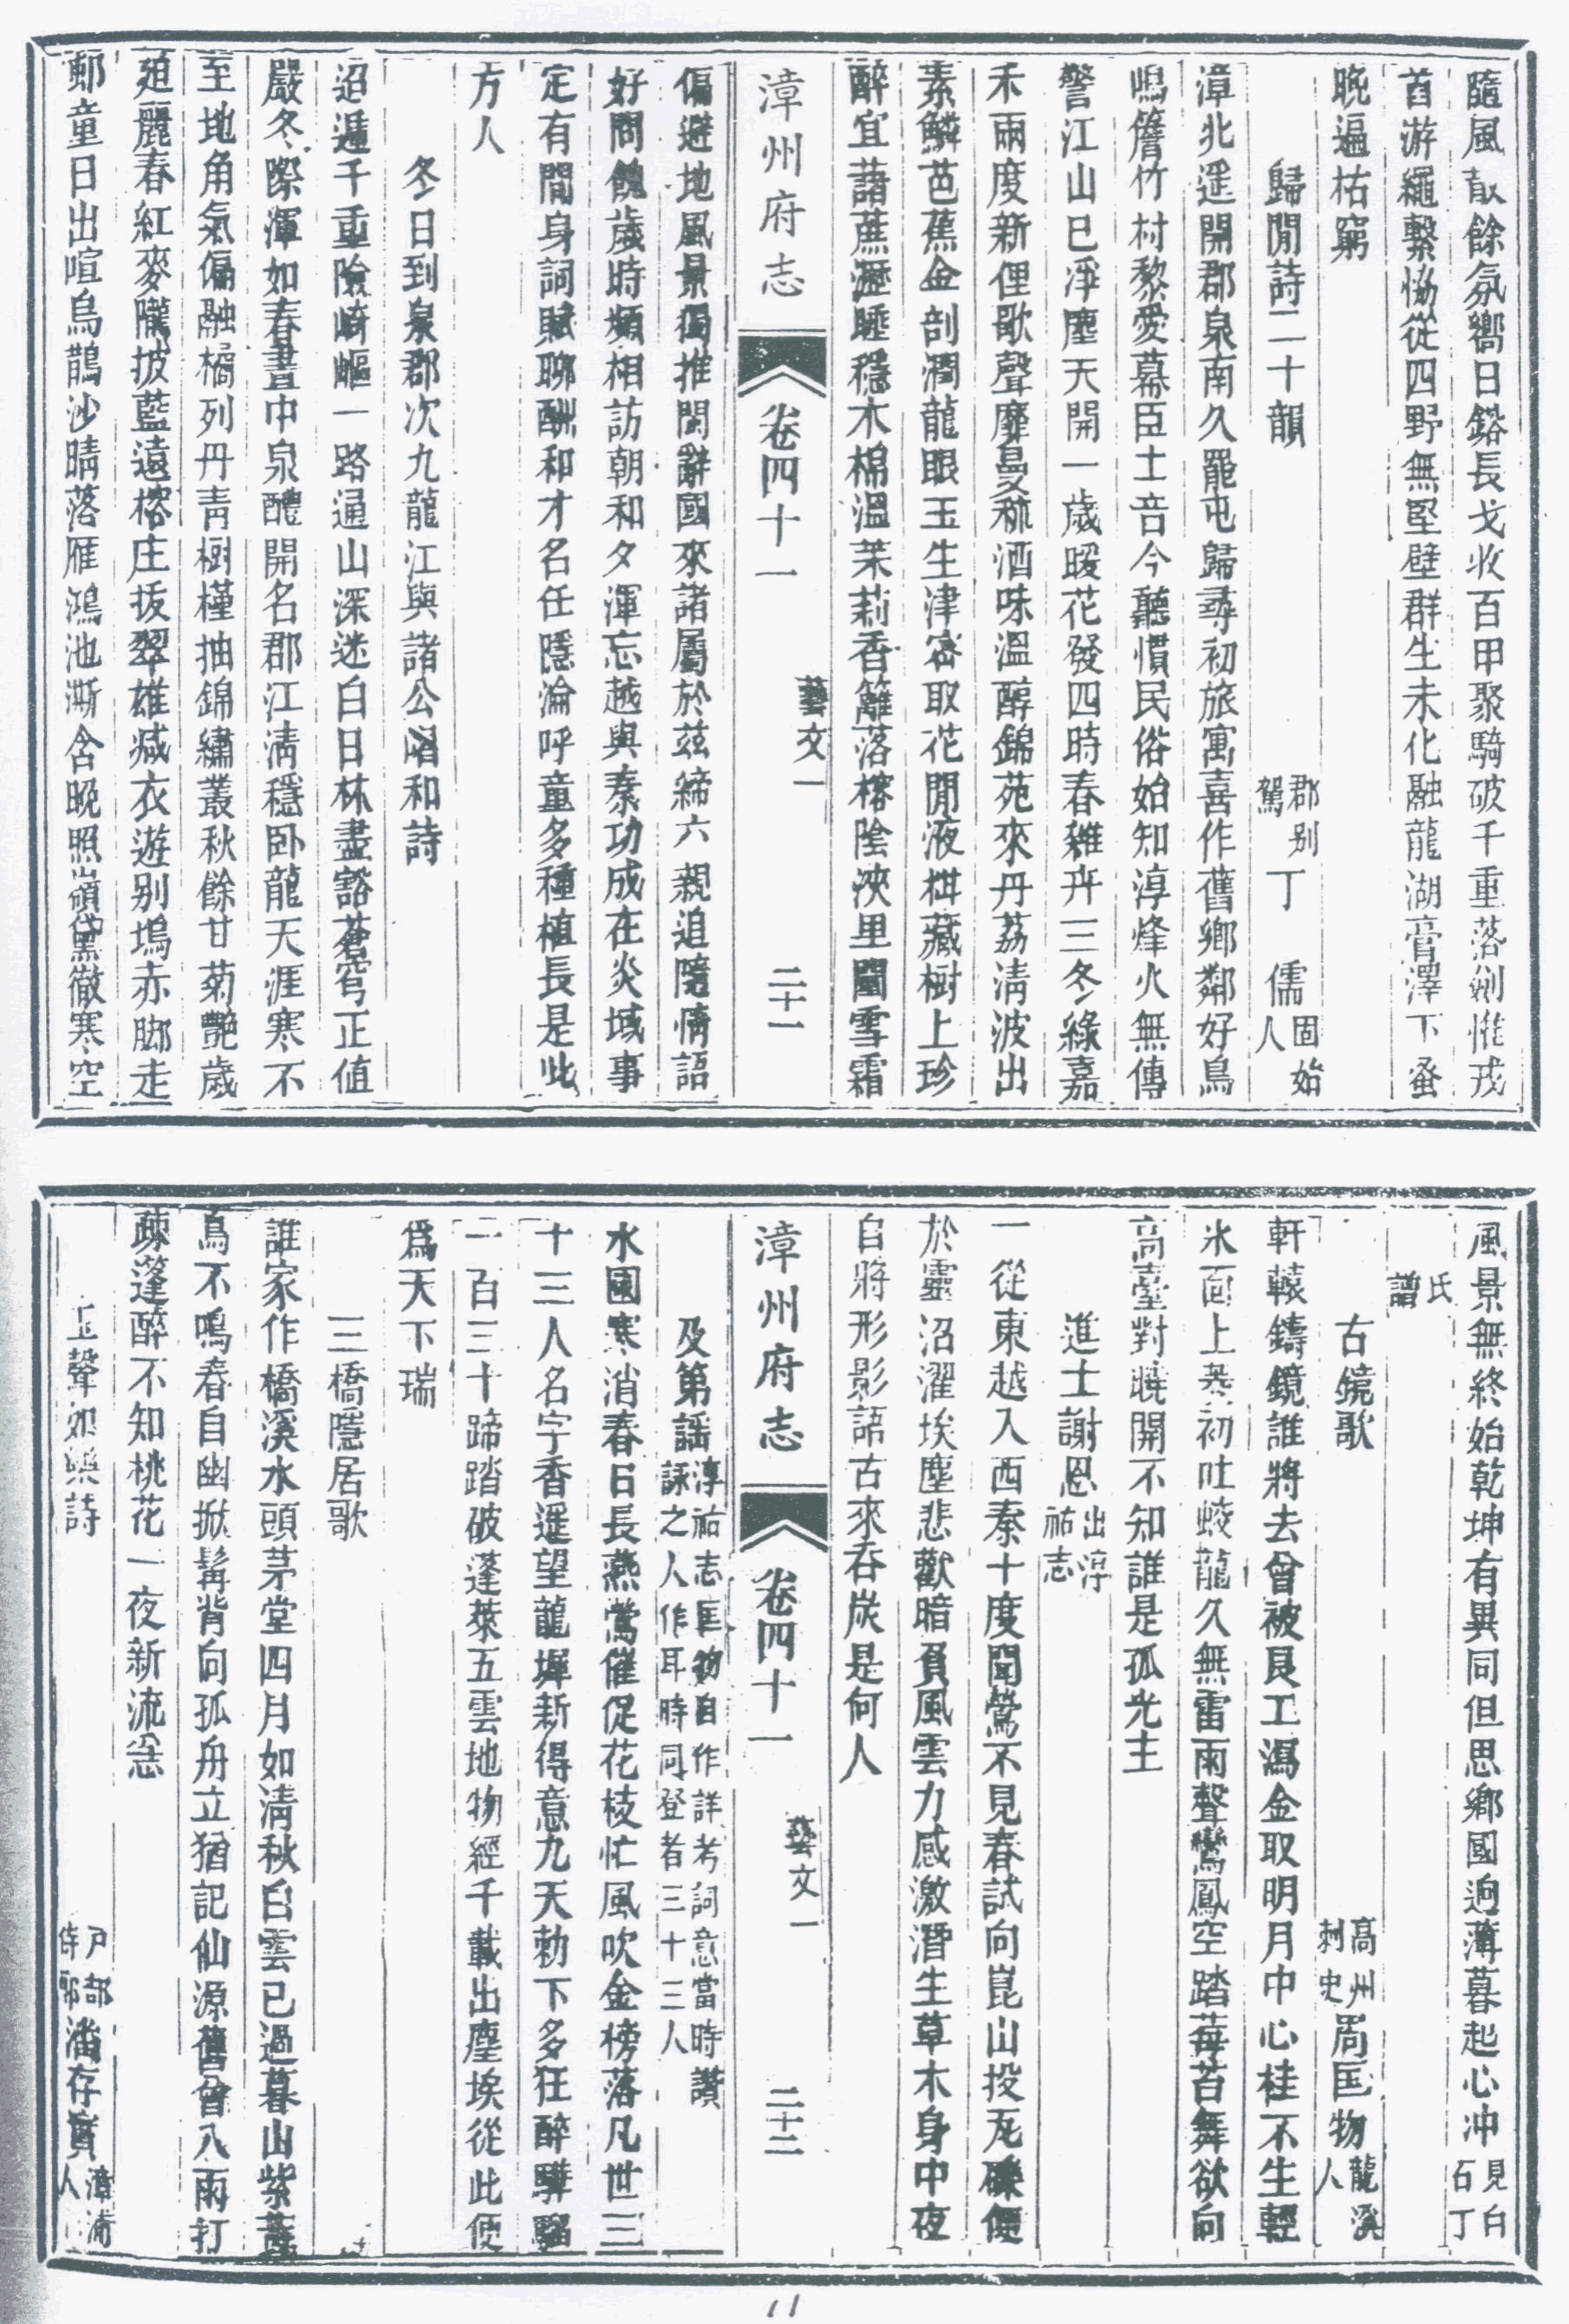 隨風散餘氛嚮日鎔長戈收百甲聚騎破千重落劍惟戎
首游繩繫恊從四野無堅壁群生未化融龍湖膏澤下蚤
晚遍枯窮
歸閒詩二十韻 郡别駕 丁儒 固始人
漳北遥開郡泉南久罷屯歸尋初旅寓喜作舊鄉鄰好鳥
鳴簷竹村黎愛幕臣土音今聽慣民俗始知淳烽火無傳
警江山已淨塵天開一歲暖花發四時春雜卉三冬綠嘉
禾兩度新俚歌聲靡曼秫酒味溫醇錦苑來丹荔清波出
素鱗芭蕉金剖潤龍眼玉生津蜜取花間液柑藏樹上珍
醉宜藷蔗瀝睡穩木棉溫茉莉香籬落榕陰浹里闉雪霜
漳州府志 卷四十一 藝文一 二十一
偏避地風景獨推閩辭國來諸屬於兹締六親追隨情語
好問餽歲時頻相訪朝和夕渾忘越與秦功成在炎域事
定有閒身詞賦聊酬和才名任隱淪呼童多種植長是此
方人
冬日到泉郡次九龍江與諸公唱和詩
迢遞千重險崎嶇一路通山深迷白日林盡豁蒼穹正值
嚴冬際渾如春晝中泉醴開名郡江清穩卧龍天涯寒不
至地角氣偏融橘列丹青樹槿抽錦繡叢秋餘甘菊艷歲
廹麗春紅麥隴披藍遠榕庄拔翠雄減衣遊别塢赤脚走
鄰童日出喧鳥鵲沙晴落雁鴻池澌含晚照嶺黛徹寒空
風景無終始乾坤有異同但思鄉國逈薄暮起心冲 見白石丁
氏譜
古鏡歌 高州刺史 周匡物 龍溪人
軒轅鑄鏡誰將去曾被良工瀉金取明月中心桂不生輕
氷面上菱初吐蛟龍久無雷雨聲鸞鳳空踏莓苔舞欲向
高臺對曉開不知誰是孤光主
進士謝恩 出淳祐志
一從東越入西秦十度聞鶯不見春試向崑山投瓦礫便
於靈沼濯埃塵悲歡暗負風雲力感激潛生草木身中夜
自將形影語古來吞炭是何人
漳州府志 卷四十一 藝文一 二十二
及第謡 淳祐志匡物自作詳考詞意當時讚詠之人作耳時同登者三十三人
水國寒消春日長燕鶯催促花枝忙風吹金榜落凡世三
十三人名字香遥望龍墀新得意九天勅下多狂醉驊騮
一百三十蹄踏破蓬萊五雲地物經千載出塵埃從此便
爲天下瑞
三橋隱居歌
誰家作橋溪水頭茅堂四月如清秋白雲已過暮山紫
鳥不鳴春自幽掀髯背向孤舟立猶記仙源舊曾入雨打
疎篷醉不知桃花一夜新流急
玉聲如樂詩 戸部侍郎 潘存實 漳浦人